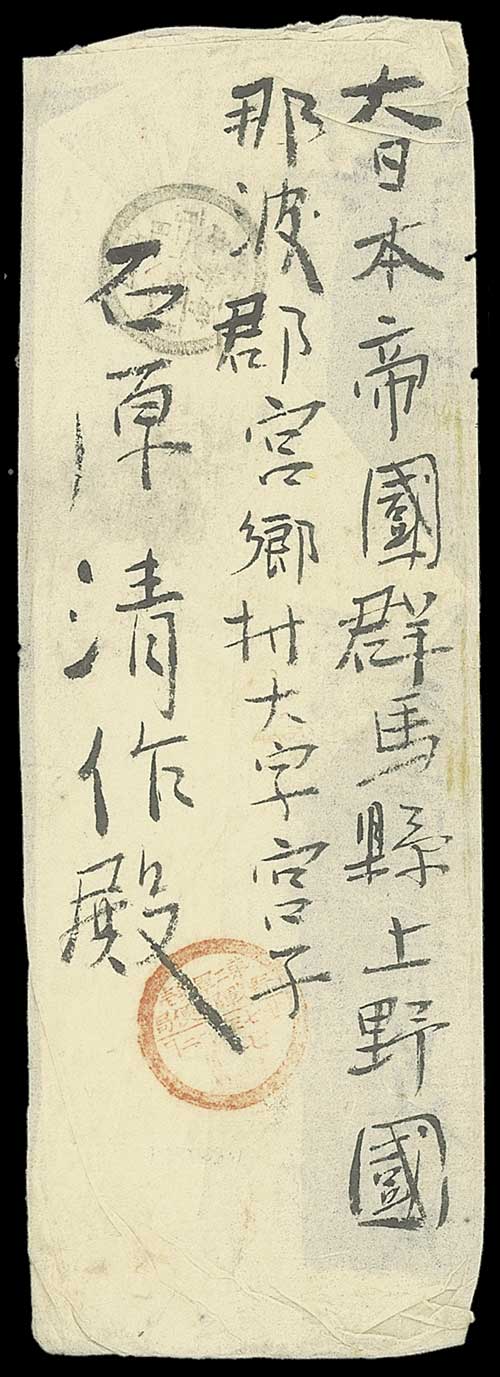 大日本帝國群馬縣上野國
那波郡宮郷村大字宮子
石原清作殿